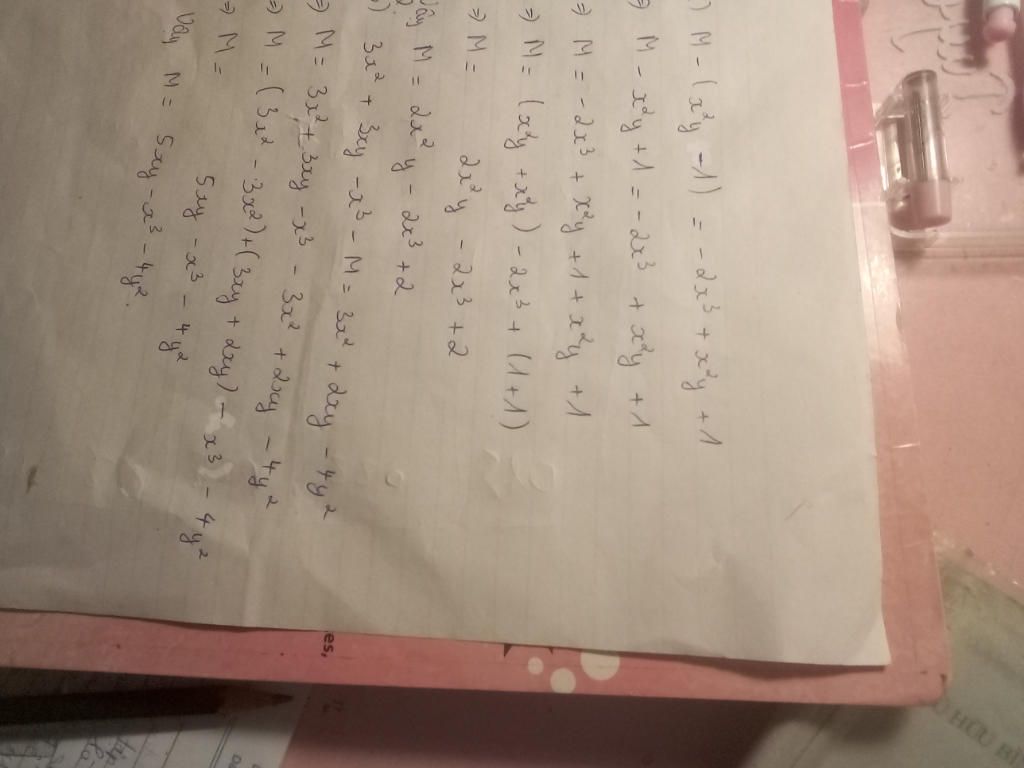 ) M - (x²y - 1) = - 2x³ + x²y + 1
⇒ M - x²y + 1 = - 2x³ + x²y + 1
⇒ M = - 2x³ + x²y + 1 + x²y + 1
⇒ M = (x²y + x²y) - 2x³ + (1 + 1)
⇒ M = 2x²y - 2x³ + 2
Vậy M = 2x²y - 2x³ + 2
) 3x² + 3xy - x³ - M = 3x² + 2xy - 4y²
⇒ M = 3x² + 3xy - x³ - 3x² + 2xy - 4y²
⇒ M = (3x² - 3x²) + (3xy + 2xy) - x³ - 4y²
⇒ M = 5xy - x³ - 4y²
Vậy M = 5xy - x³ - 4y².
es,